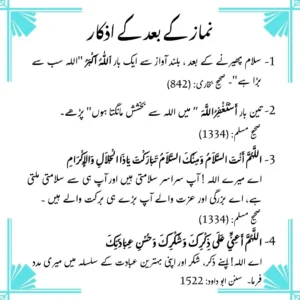 نماز کے بعد کے اذکار
1- سلام پھیرنے کے بعد ، بلند آواز سے ایک بار اَللّٰهُ اَكْبَرُ "اللہ سب سے
بڑا ہے"۔ صحیح بخاری: (842)
2- تین بار أَسْتَغْفِرُاللّٰهَ " میں اللہ سے بخشش مانگتا ہوں" پڑھے۔
صحیح مسلم: (1334)
3- اَللّٰهُمَّ أَنْتَ السَّلَامُ وَمِنْكَ السَّلَامُ تَبَارَكْتَ يَاذَا الْجَلَالِ وَالْإِكْرَامِ
اے میرے اللہ ! آپ سراسر سلامتی ہیں اور آپ ہی سے سلامتی ملتی
ہے، اے بزرگی اور عزت والے آپ بڑے ہی برکت والے ہیں ۔
صحیح مسلم: (1334)
4- اَللّٰهُمَّ أَعِنِّي عَلَى ذِكْرِكَ وَشُكْرِكَ وَحُسْنِ عِبَادَتِكَ
اے اللہ! اپنے ذکر، شکر اور اپنی بہترین عبادت کے سلسلہ میں میری مدد
فرما۔ سنن ابو داود: 1522